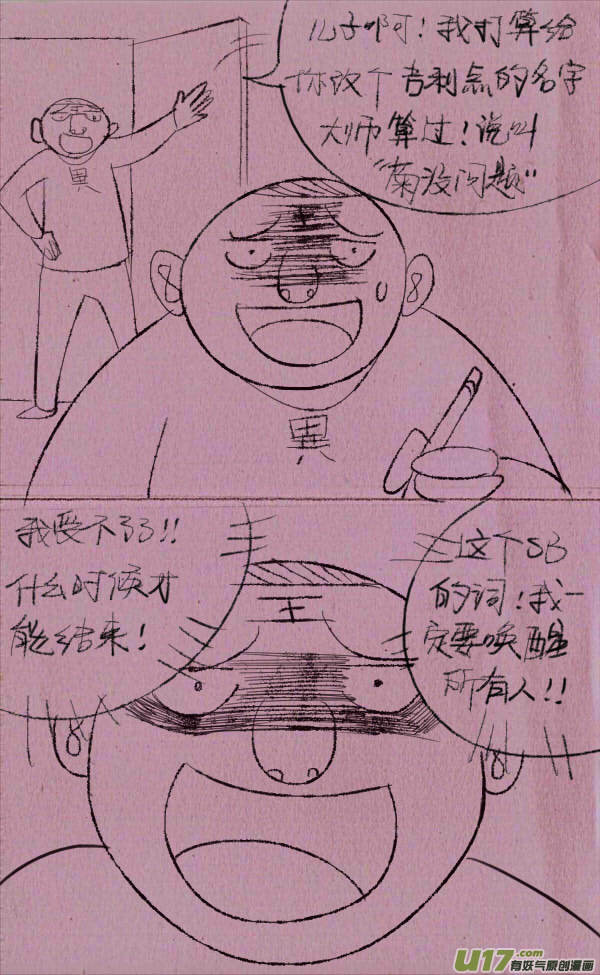 儿子啊！我打算给
你改个吉利点的名字
大师算过！说叫
"菊没问题"
異
異
我受不了了!!
什么时候才
能结束！
王
这个SB
的词！我一
定要唤醒
所有人!!
U17.com
有妖气原创漫画